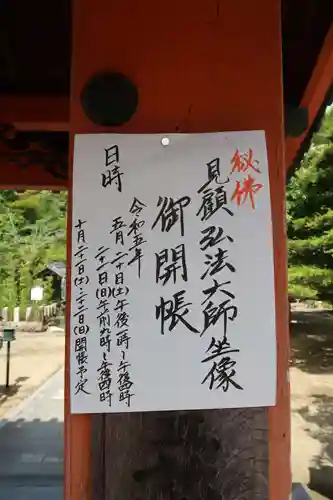 秘佛
見顧弘法大師坐像
御開帳
日時
令和五年
五月二十日(土)午後一時～午後四時
二十一日(日)午前九時～午後四時
十月二十一日(土)・二十二日(日)開帳予定